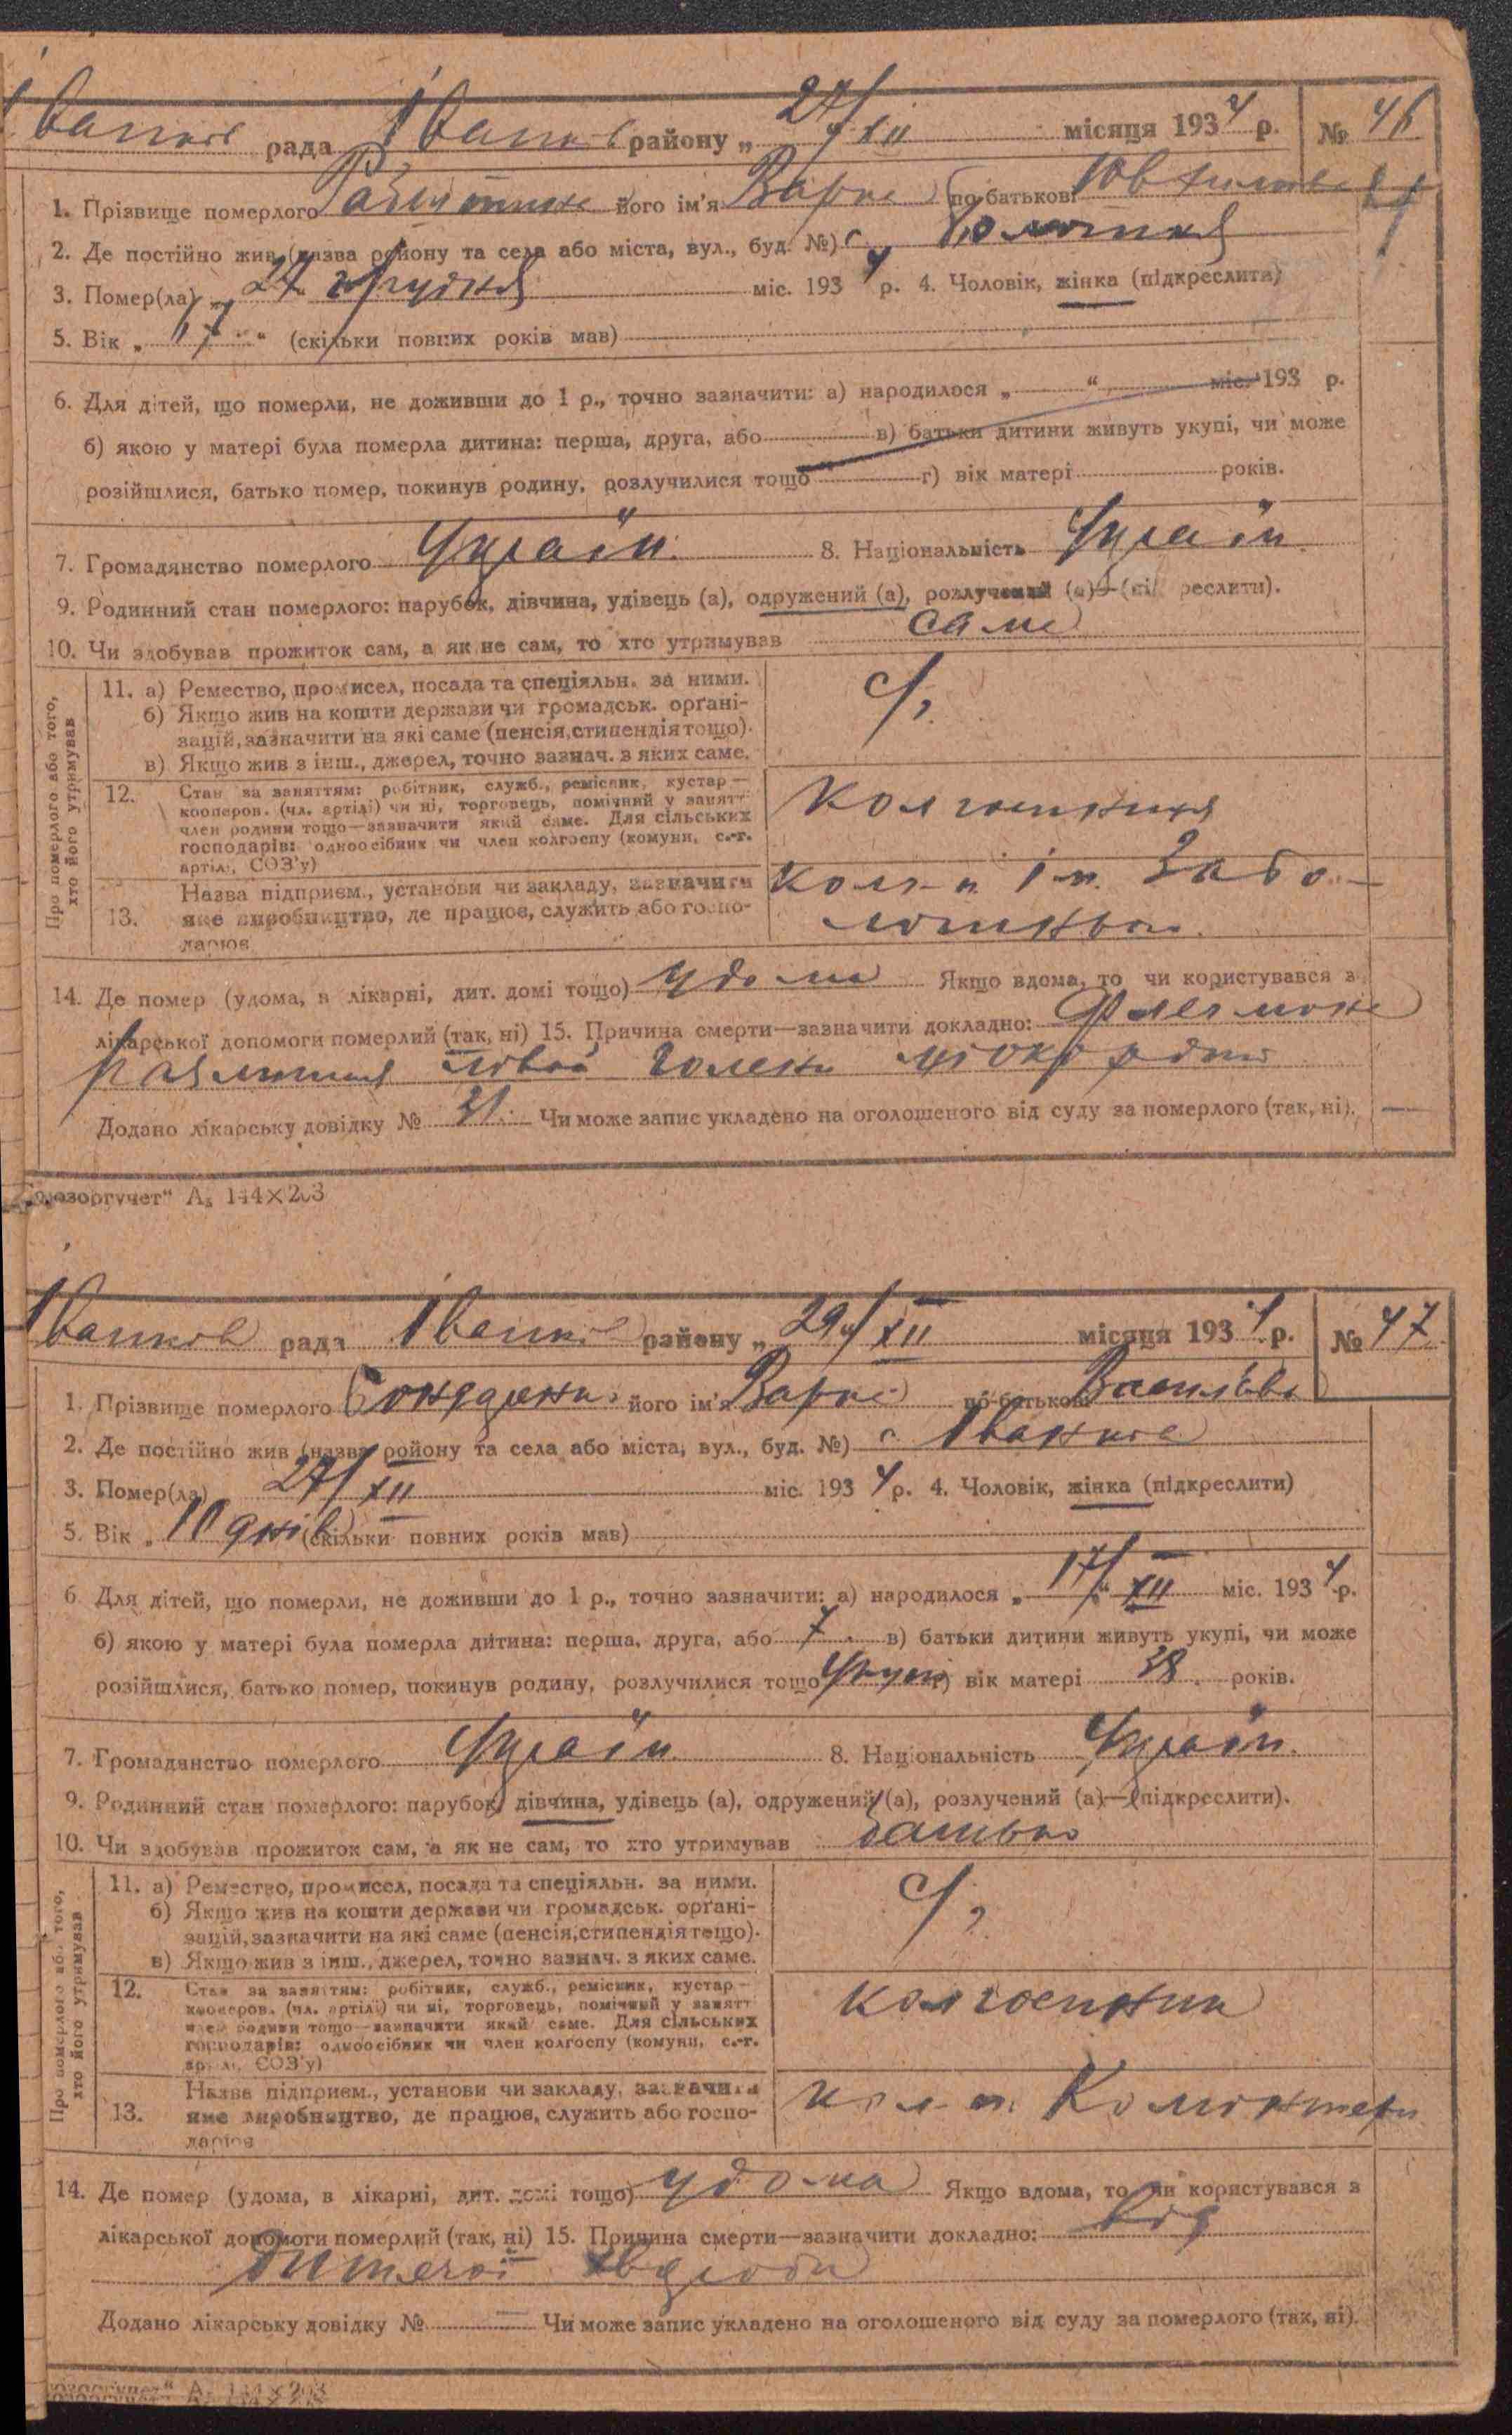 Іванків рада Іванків району „ 27/XII місяця 1934 р. № 46
1. Прізвище померлого його ім'я Варка по батькові
2. Де постійно жив (назва району та села або міста, вул., буд. №) с.
3. Помер(ла) 27 грудня міс. 1934 р. 4. Чоловік, жінка (підкреслити)
5. Вік „ 67 “ (скільки повних років мав)
6. Для дітей, що померли, не доживши до 1 р., точно зазначити: а) народилося „ “ міс. 193 р.
б) якою у матері була померла дитина: перша, друга, або в) батьки дитини живуть укупі, чи може
розійшлися, батько помер, покинув родину, розлучилися тощо г) вік матері років.
7. Громадянство померлого Україн. 8. Національність Україн.
9. Родинний стан померлого: парубок, дівчина, удівець (а), одружений (а), розлучений (а)—(підкреслити).
10. Чи здобував прожиток сам, а як не сам, то хто утримував сама
Про померлого або того,
хто його утримував
11. а) Ремество, промисел, посада та спеціяльн. за ними.
б) Якщо жив на кошти держави чи громадськ. орґані-
зацій, зазначити на які саме (пенсія, стипендія тощо).
в) Якщо жив з інш., джерел, точно зазнач. з яких саме.
с/г
12. Стан за заняттям: робітник, служб., ремісник, кустар—
кооперов. (чл. артілі) чи ні, торговець, помічний у занятт
член родини тощо—зазначити який саме. Для сільських
господарів: одноосібник чи член колгоспу (комуни, с.-г.
артілі, СОЗ'у)
колгоспниця
13. Назва підприєм., установи чи закладу, зазначити
яке виробництво, де працює, служить або госпо-
дарює
14. Де помер (удома, в лікарні, дит. домі тощо) удома Якщо вдома, то чи користувався з
лікарської допомоги померлий (так, ні) 15. Причина смерти—зазначити докладно: Флегмона
голені міокардит
Додано лікарську довідку № 31. Чи може запис укладено на оголошеного від суду за померлого (так, ні). —
„Союзоргучет“ А₅ 144×203
Іванків рада Іванків району „ 29/XII місяця 1934 р. № 47
1. Прізвище померлого Бондаренко його ім'я Варка по батькові Василівна
2. Де постійно жив (назва району та села або міста, вул., буд. №) с. Іванків
3. Помер(ла) 27/XII міс. 1934 р. 4. Чоловік, жінка (підкреслити)
5. Вік „ 10 днів (скільки повних років мав)
6. Для дітей, що померли, не доживши до 1 р., точно зазначити: а) народилося „ 17/“ XII міс. 1934 р.
б) якою у матері була померла дитина: перша, друга, або 7. в) батьки дитини живуть укупі, чи може
розійшлися, батько помер, покинув родину, розлучилися тощо Укупі г) вік матері 38. років.
7. Громадянство померлого Україн. 8. Національність Україн.
9. Родинний стан померлого: парубок, дівчина, удівець (а), одружений (а), розлучений (а)—(підкреслити).
10. Чи здобував прожиток сам, а як не сам, то хто утримував батько
Про померлого або того,
хто його утримував
11. а) Ремество, промисел, посада та спеціяльн. за ними.
б) Якщо жив на кошти держави чи громадськ. орґані-
зацій, зазначити на які саме (пенсія, стипендія тощо).
в) Якщо жив з інш., джерел, точно зазнач. з яких саме.
с/г
12. Стан за заняттям: робітник, служб., ремісник, кустар—
кооперов. (чл. артілі) чи ні, торговець, помічний у занятт
член родини тощо—зазначити який саме. Для сільських
господарів: одноосібник чи член колгоспу (комуни, с.-г.
артілі, СОЗ'у)
колгоспник
13. Назва підприєм., установи чи закладу, зазначити
яке виробництво, де працює, служить або госпо-
дарює
Комінтерн
14. Де помер (удома, в лікарні, дит. домі тощо) удома Якщо вдома, то чи користувався з
лікарської допомоги померлий (так, ні) 15. Причина смерти—зазначити докладно: від
дитячої хвороби
Додано лікарську довідку № — Чи може запис укладено на оголошеного від суду за померлого (так, ні).
„Союзоргучет“ А₅ 144×203